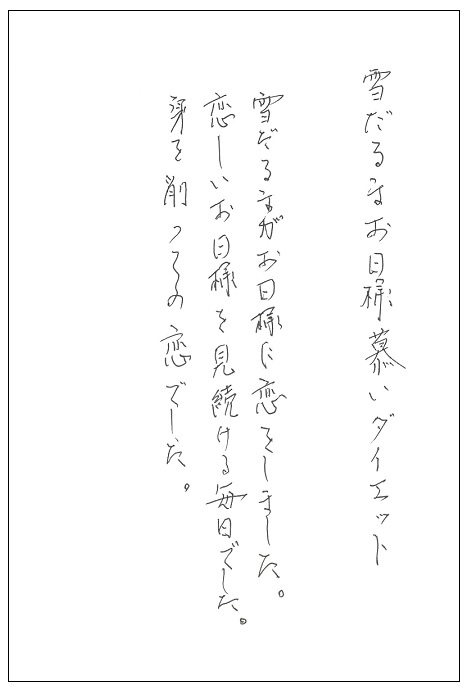 雪だるまお日様慕いダイエット
雪だるまがお日様に恋をしました。
恋しいお日様を見続ける毎日でした。
身を削っての恋でした。